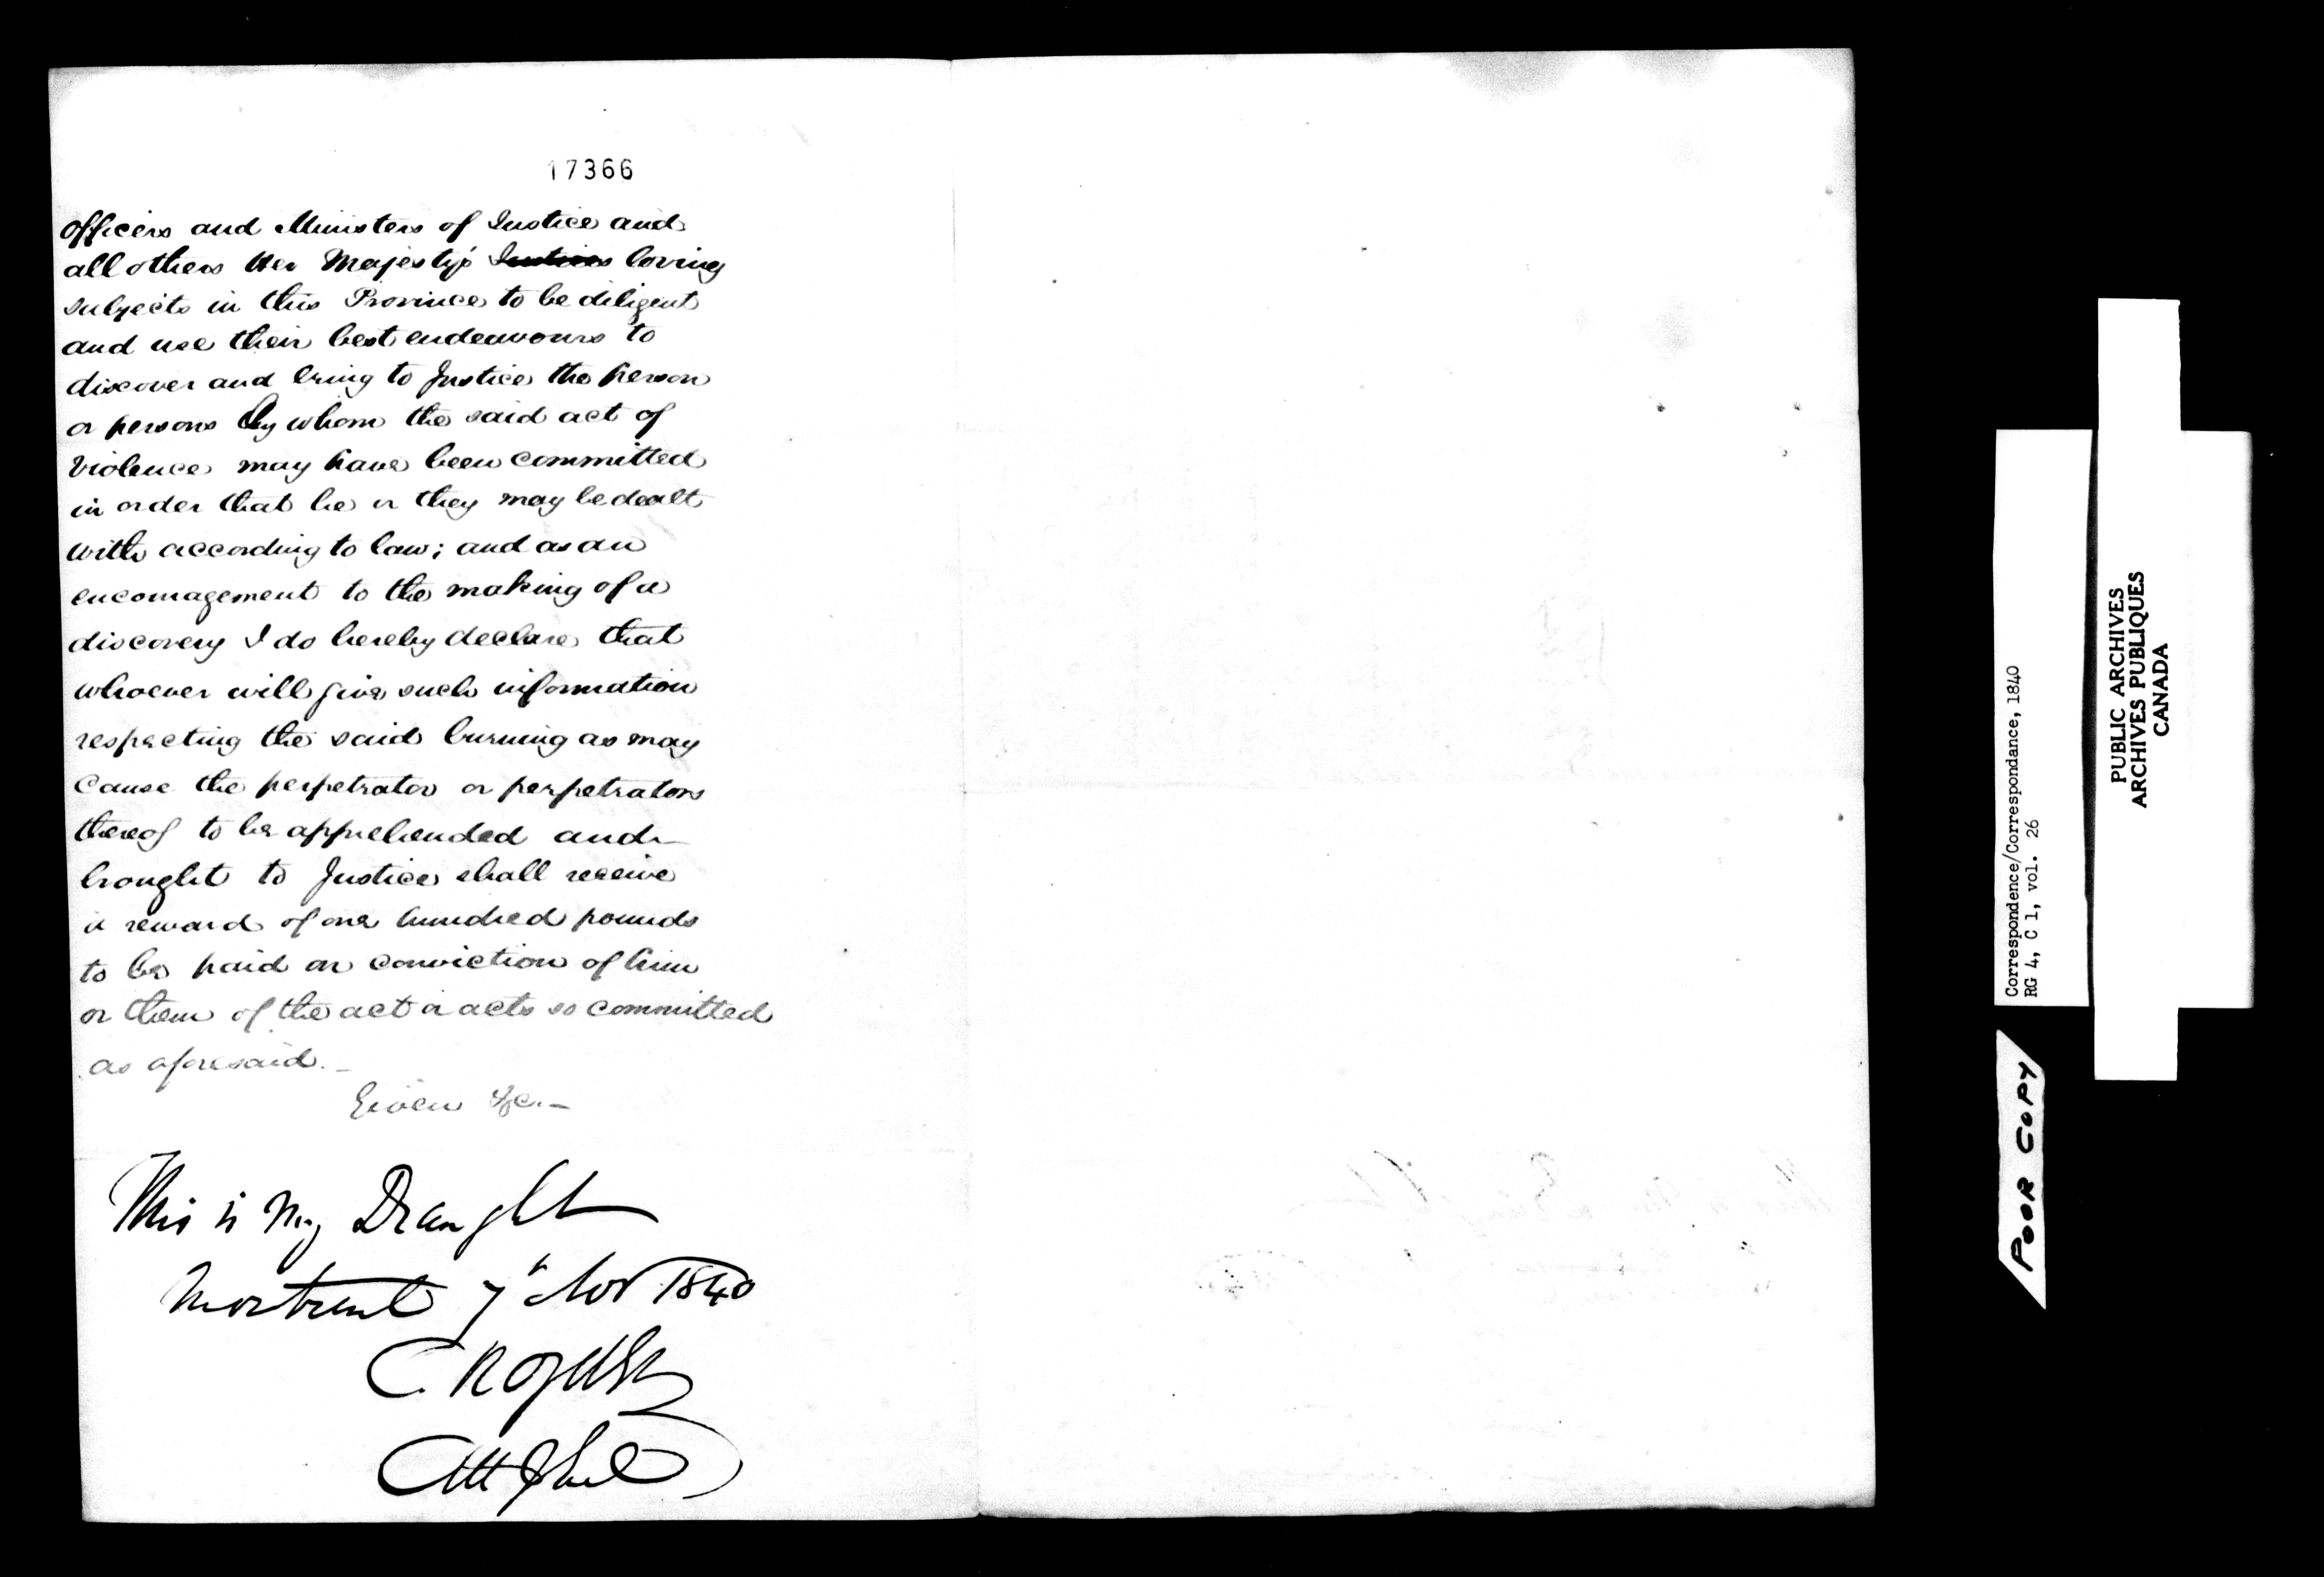 17366
officers and Ministers of Justice and
all others Her Majesty's Justices loving
subjects in this Province to be diligent
and use their best endeavours to
discover and bring to Justice the person
or persons by whom the said act of
violence may have been committed
in order that he or they may be dealt
with according to law; and as an
encouragement to the making of a
discovery I do hereby declare that
whoever will give such information
respecting the said burning as may
cause the perpetrator or perpetrators
thereof to be apprehended and
brought to Justice shall receive
a reward of one hundred pounds
to be paid on conviction of him
or them of the act or acts so committed
as aforesaid. _
Given &c. _
This is my Draught
Montreal 7th Nov 1840
C R Ogden
Att Genl
Correspondence/Correspondance, 1840
RG 4, C 1, vol. 26
PUBLIC ARCHIVES
ARCHIVES PUBLIQUES
CANADA
POOR COPY